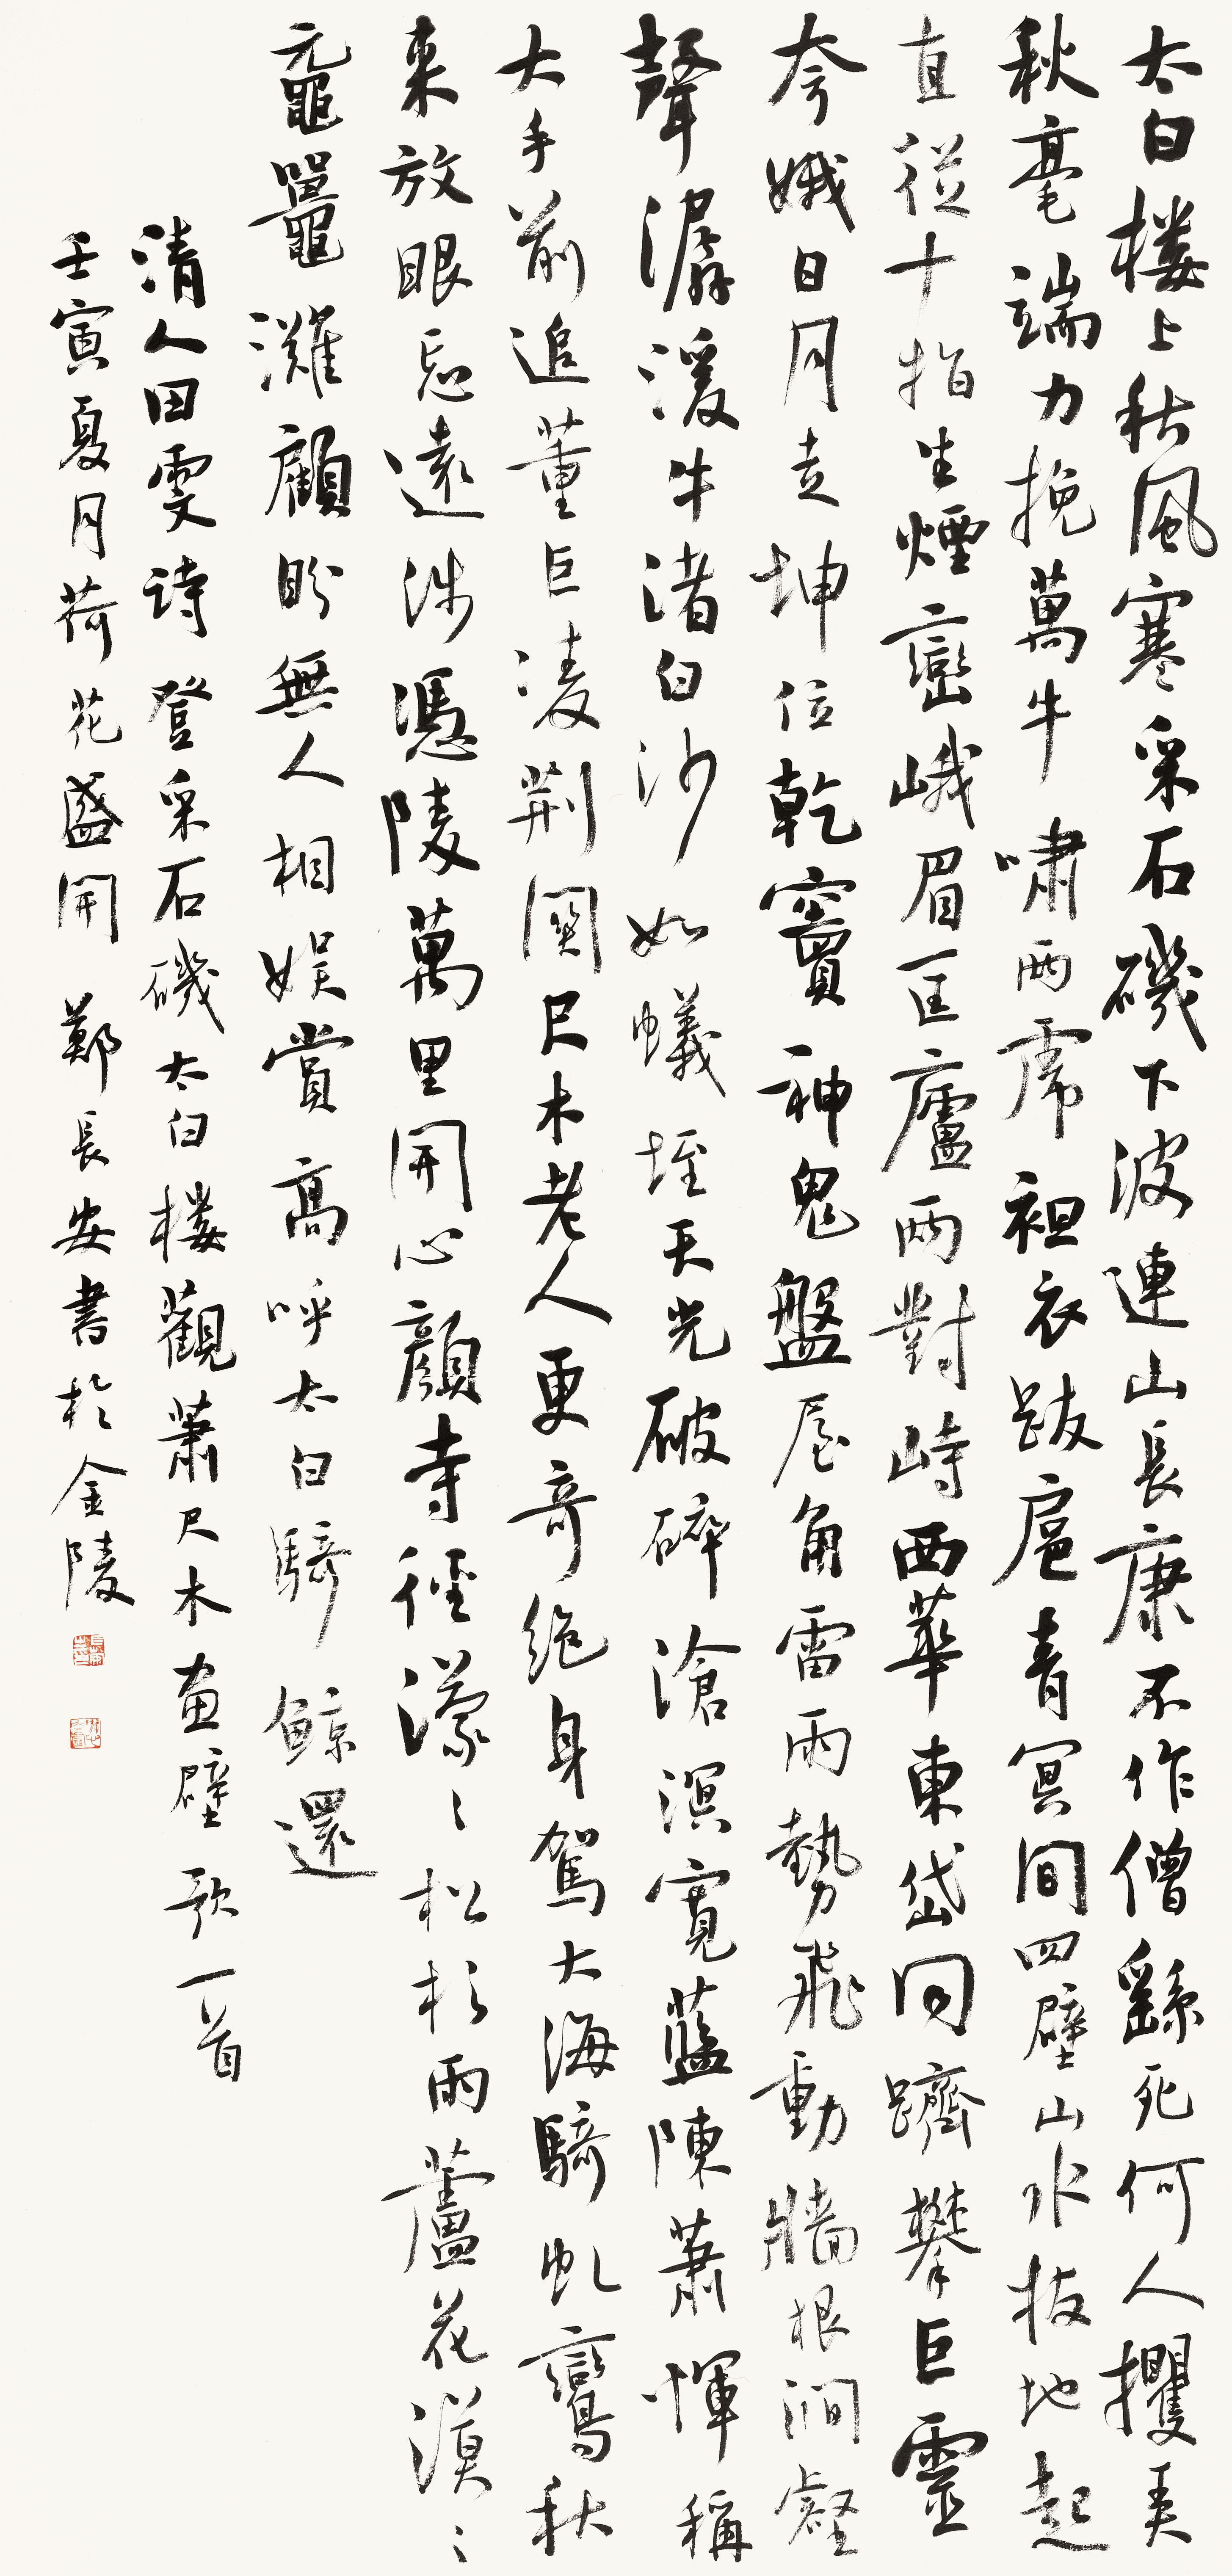 太白楼上秋風寒采石磯下波連山長康不作僧繇死何人攫筆
秋毫端力挽萬牛嘯兩虎袒衣跋扈青冥間四壁山水拔地起
直從十指生煙巒峨眉匡廬兩對峙西華東岱同躋攀巨靈
夸娥日月走坤位乾竇神鬼盤屋角雷雨勢飛動牆根澗壑
聲潺湲牛渚白沙如蟻垤天光破碎滄溟寬藍陳蕭惲稱
大手前追董巨凌荆關尺木老人更奇絕身駕大海騎虬鸞秋
来放眼忘遠涉憑陵萬里開心顏寺徑濛〻松杉雨蘆花漠〻
黿鼉灘顧盼無人相娱賞高呼太白騎鲸還
清人田雯诗 登采石磯太白楼觀蕭尺木畫壁歌一首
壬寅夏月荷花盛開 鄭長安書於金陵